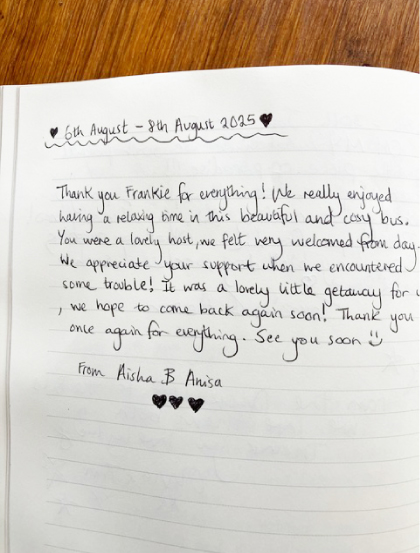 ♥ 6th August - 8th August 2025 ♥
Thank you Frankie for everything! We really enjoyed
having a relaxing time in this beautiful and cosy bus.
You were a lovely host, we felt very welcomed from day
We appreciate your support when we encountered
some trouble! It was a lovely little getaway for
, we hope to come back again soon! Thank you
once again for everything. See you soon :)
From Aisha & Anisa
♥♥♥